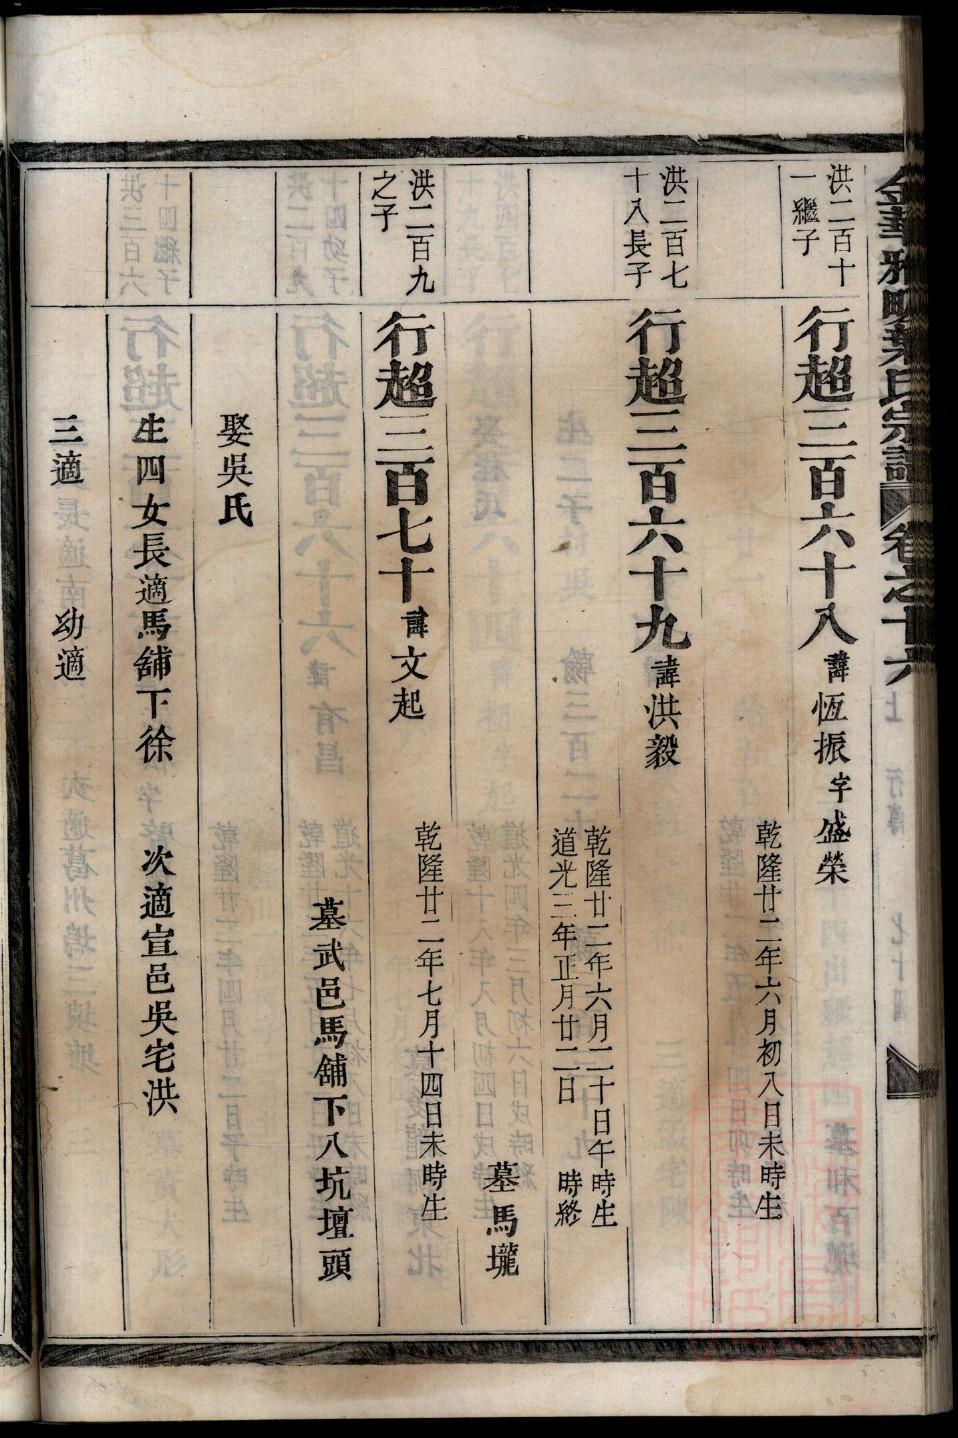 金華雅畈葉氏宗譜 卷之十六
洪二百十
一繼子
行超三百六十八 諱 恆振 字 盛榮
乾隆廿二年六月初八日未時生
洪二百七
十八長子
行超三百六十九 諱 洪毅
乾隆廿二年六月二十日午時生
道光三年正月廿二日 時終
墓馬壠
洪二百九
之子
行超三百七十 諱 文起
乾隆廿二年七月十四日未時生
墓武邑馬舖下八坑壇頭
娶吳氏
生四女長適馬舖下徐 次適宣邑吳宅洪
三適 幼適